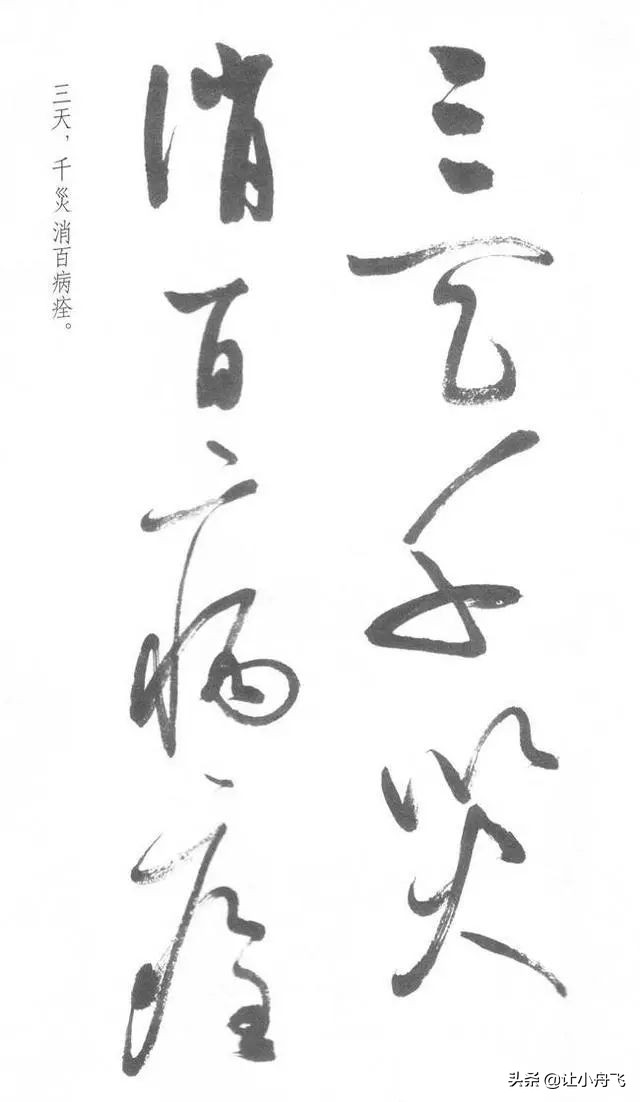 三天千災
消百病痊
三天，千災消百病痊。
头条 @让小舟飞